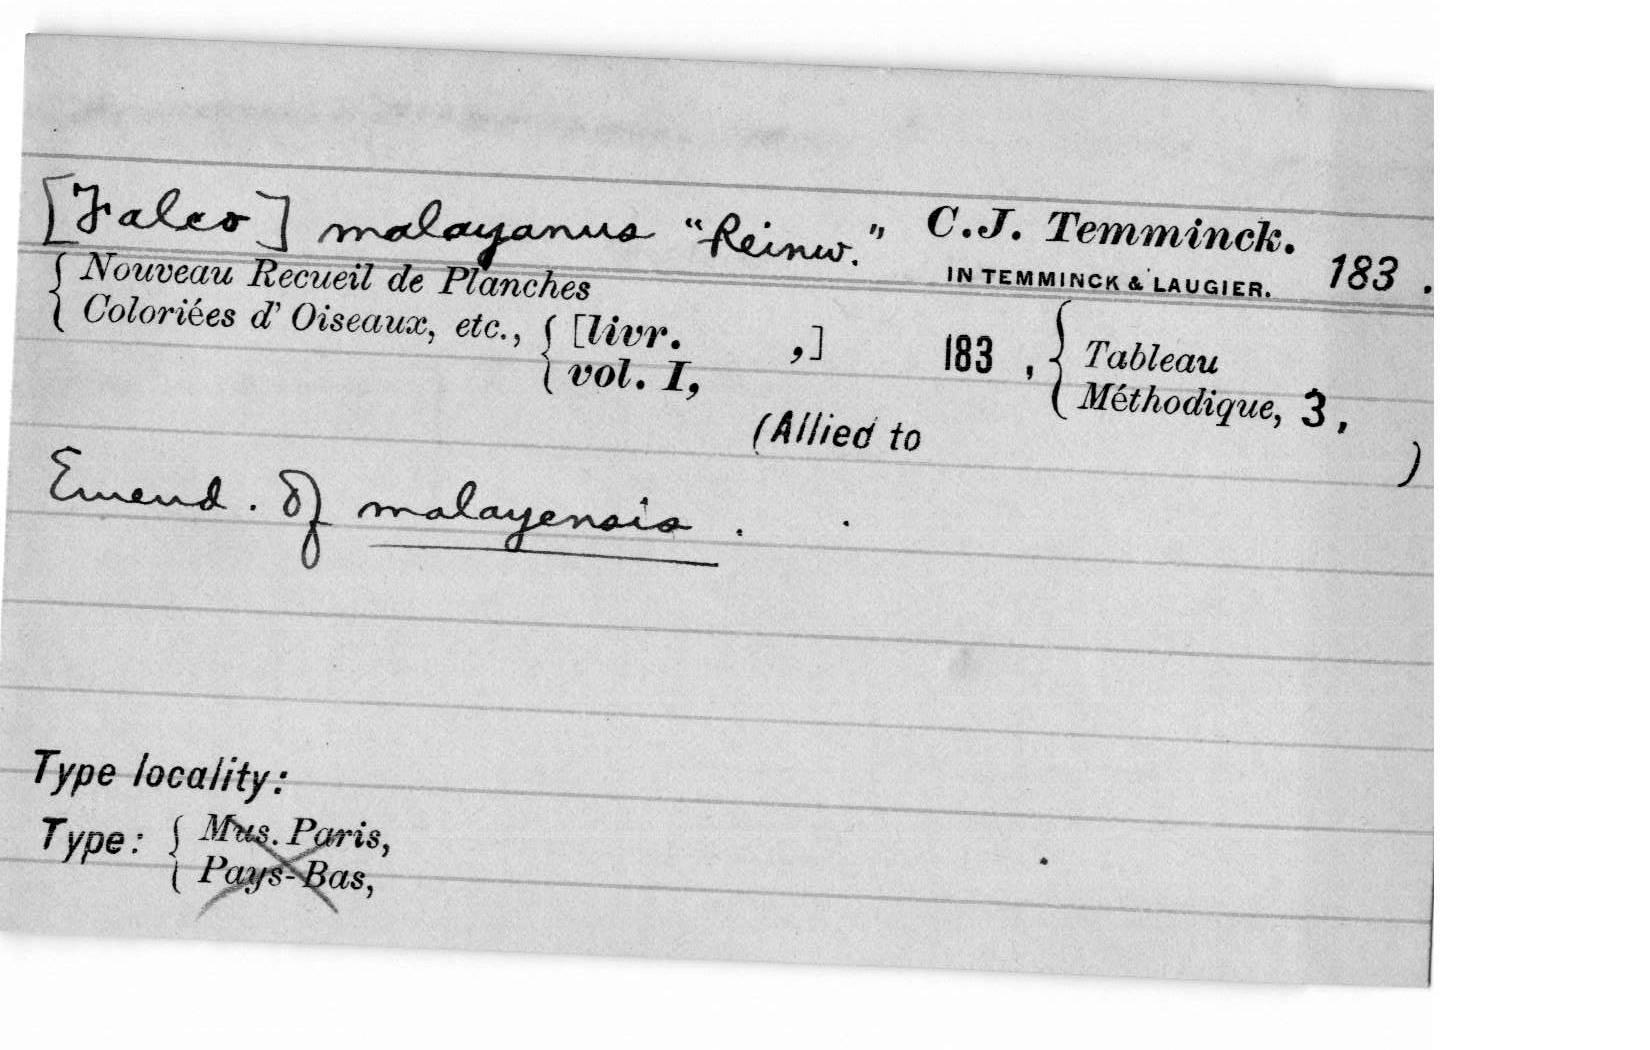 [Falco] malayanus "Reinw." C.J. Temminck.
IN TEMMINCK & LAUGIER. 183 .
{ Nouveau Recueil de Planches
Coloriées d' Oiseaux, etc., { [livr. ,] 183 , { Tableau
vol. I, Méthodique, 3,
(Allied to )
Emend. of malayensis .
Type locality:
Type: { Mus. Paris,
Pays-Bas,